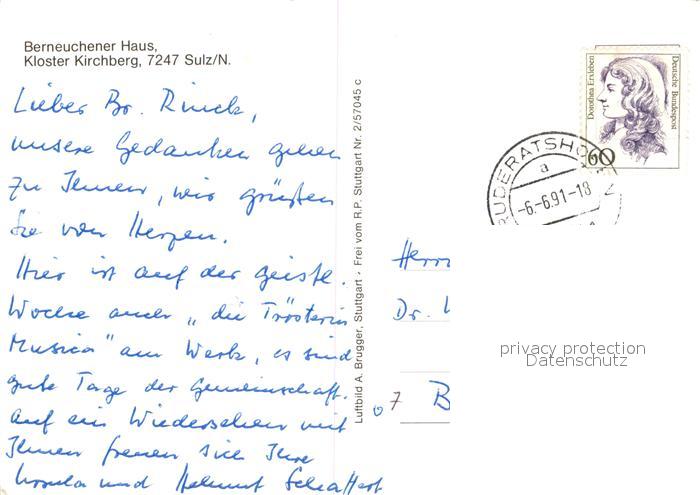 Berneuchener Haus,
Kloster Kirchberg, 7247 Sulz/N.
Lieber Br. Rinck,
unsere Gedanken gehen
zu Ihnen, wir grüßen
Sie von Herzen.
Hier ist auf der geistl.
Woche auch „die Trösterin
Musica" am Werk, es sind
gute Tage der Gemeinschaft.
Auf ein Wiedersehen mit
Ihnen freuen sich Ihre
Ursula und Helmut
Luftbild A. Brugger, Stuttgart - Frei vom R.P. Stuttgart Nr. 2/57045 c
Dorothea Erxleben
Deutsche Bundespost
60
RUDERATSHO
a
-6.-6.91-18
Herrn
Dr.
07 B
privacy protection
Datenschutz